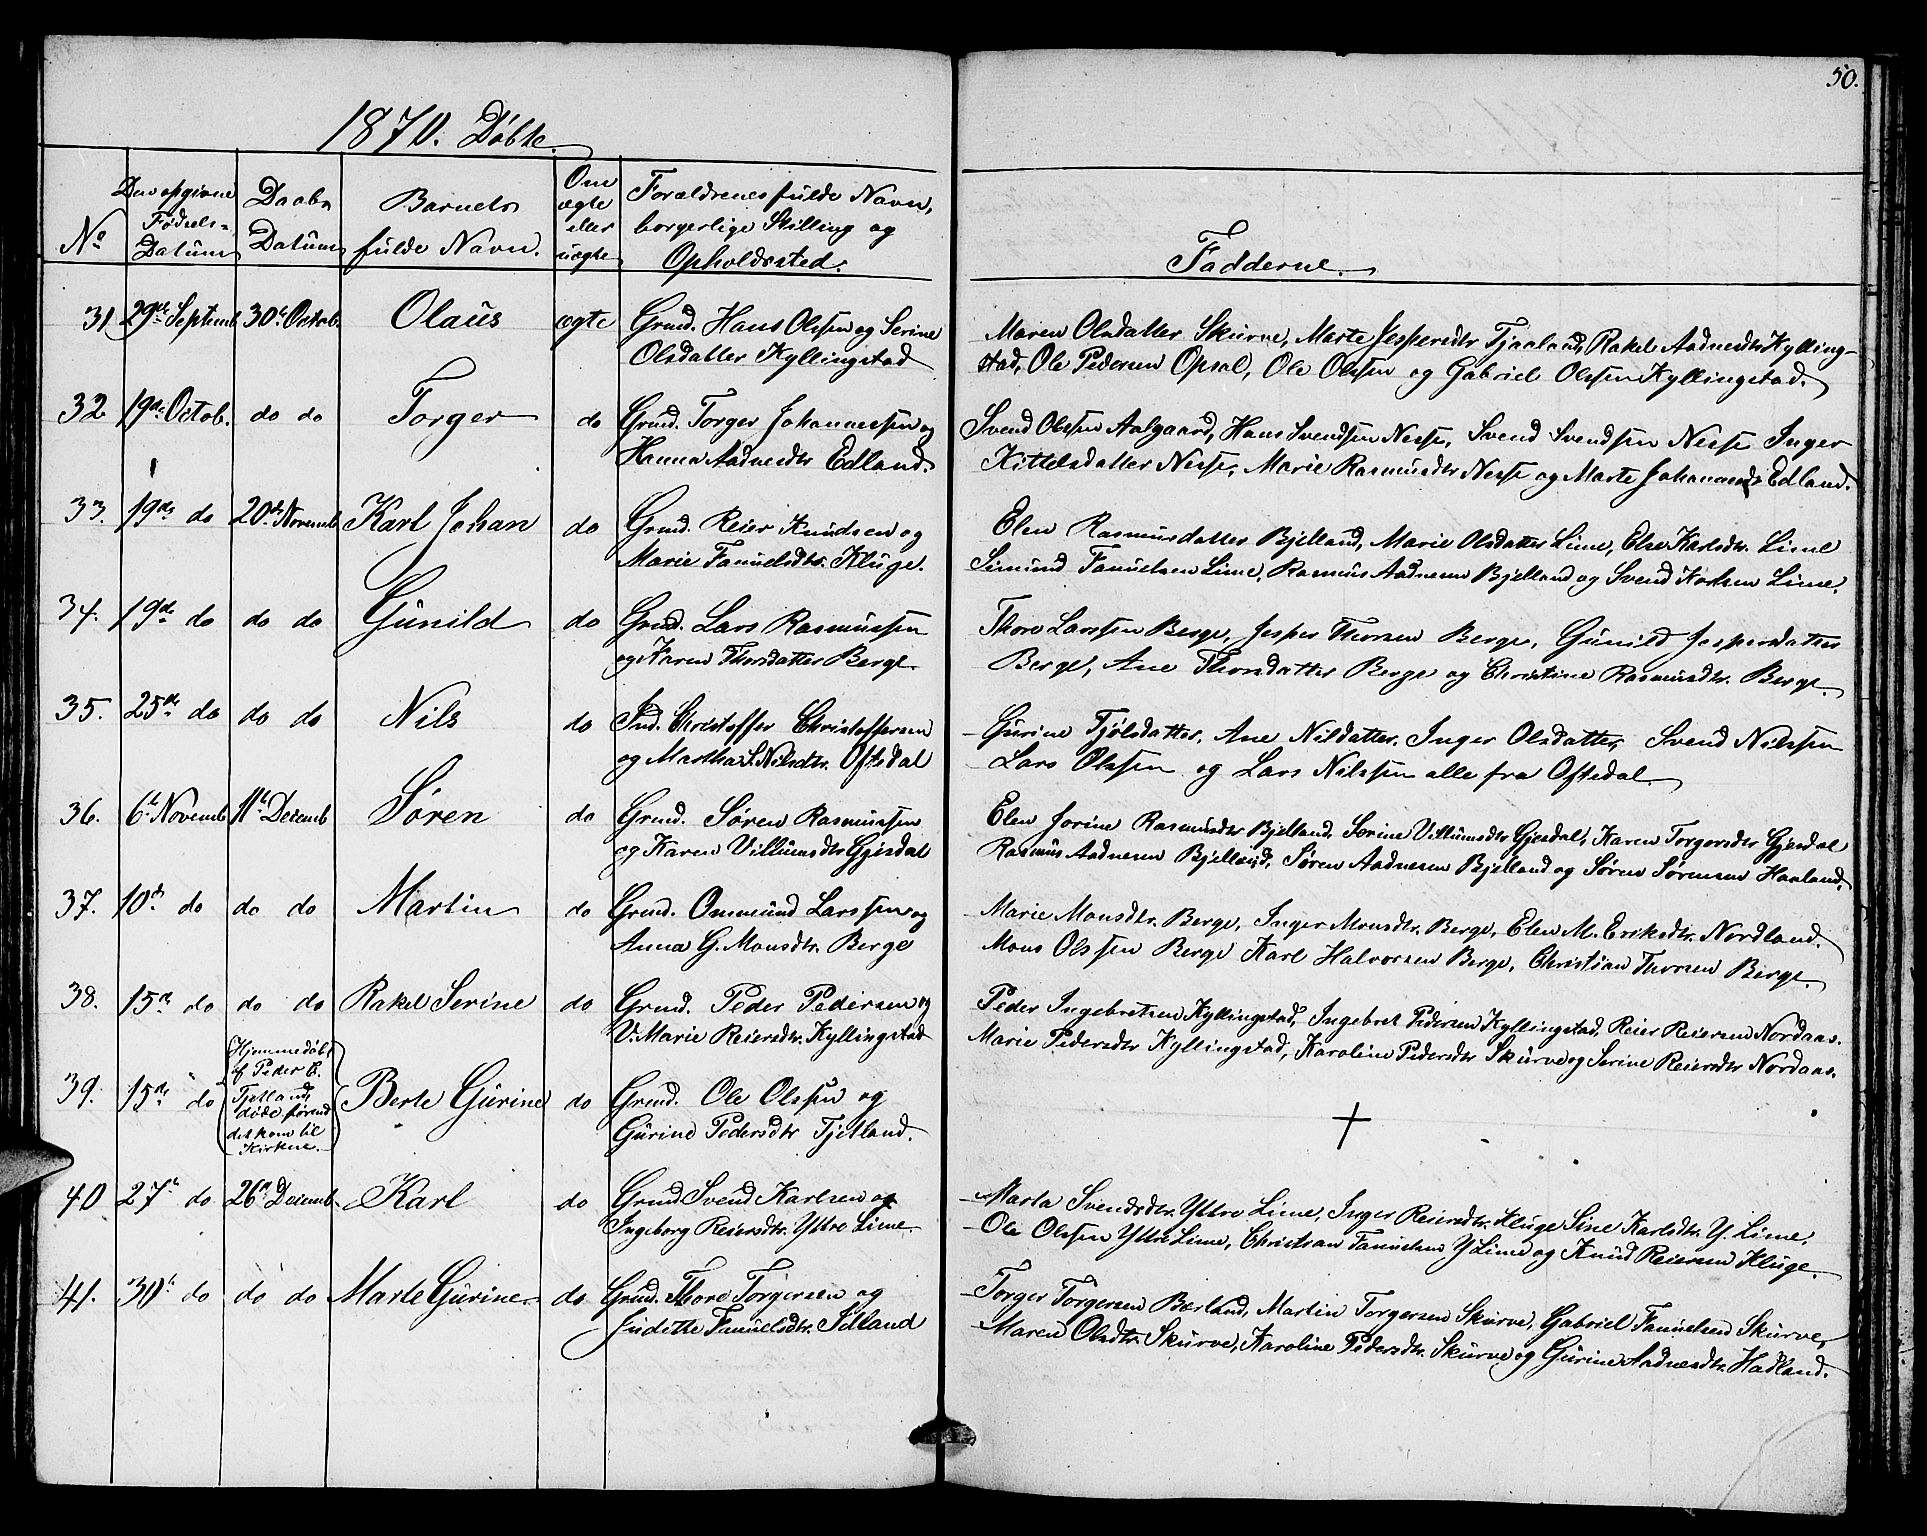 50.
1870. Døbte.
No
Den opgivne Fødsels-Datum
Daabs Datum
Barnets fulde Navn.
Om ægte eller uægte
Forældrenes fulde Navn, borgerlige Stilling og Opholdssted.
Fadderne.
31 29de Septemb. 30te Octob. Olaus ægte Grmd. Hans Olssen og Serine
Olsdatter Kyllingstad
Maren Olsdatter Skurve, Marte Jespersdtr Tjaaland, Rakel Aadnesdtr Kylling-
stad, Ole Pedersen Opsal, Ole Olssen og Gabriel Olssen Kyllingstad.
32 19de Octob. do do Torger do Grmd. Torger Johannessen og
Hanna Aadnesdtr Edland.
Svend Olssen Aalgaard, Hans Svendsen Nesse, Svend Svendsen Nesse Inger
Kittelsdatter Nesse, Marie Rasmusdtr Nesse og Marte Johannesdtr Edland.
33. 19de do 20de Novemb Karl Johan do Grmd. Reier Knudsen og
Marie Fanuelsdtr. Kluge.
Elen Rasmusdatter Bjelland, Marie Olsdatter Lime, Else Karlsdtr. Lime
Simund Fanuelsen Lime, Rasmus Aadnesen Bjelland og Svend Karlsen Lime.
34. 19de do do do Gunild do Grmd. Lars Rasmussen
og Karen Thorsdatter Berge.
Thore Larssen Berge, Jesper Thorsen Berge, Gunild Jespersdatter
Berge, Ane Thorsdatter Berge og Christine Rasmusdtr. Berge.
35. 25de do do do Nils do Ind. Christoffer Christoffersen
og Martha S. Nilsdtr. Oftedal
Gurine Tjølsdatter, Ane Nilsdatter, Inger Olsdatter, Svend Nilssen
Lars Olssen og Lars Nilssen alle fra Oftedal.
36. 6te Novemb 11te Decemb Søren do Grmd. Søren Rasmussen
og Karen Villumsdtr Gjesdal
Elen Jorine Rasmusdtr Bjelland, Serine Villumsdtr Gjesdal, Karen Torgersdtr Gjesdal
Rasmus Aadnesen Bjelland, Søren Aadnesen Bjelland og Søren Sørensen Haaland.
37. 10de do do do Martin do Grmd. Ommund Larssen og
Anna G. Monsdtr. Berge
Marie Monsdtr. Berge, Inger Monsdtr. Berge, Elen M. Eriksdtr. Nordland.
Mons Olssen Berge Karl Halvorsen Berge, Christian Thorsen Berge.
38. 15de do do do Rakel Serine do Grmd. Peder Pedersen og
V. Marie Reiersdtr. Kyllingstad
Peder Ingebretsen Kyllingstad, Ingebret Pedersen Kyllingstad, Reier Reiersen Nordaas.
Marie Pedersdtr Kyllingstad, Karoline Pedersdtr Skurve og Serine Reiersdtr Nordaas.
39. 15de do Hjemmedøbt
af Peder E.
Tjetland,
døde førend
det kom til
Kirken. Berte Gurine do Grmd. Ole Olssen og
Gurine Pedersdtr Tjetland.
40 27de do 26de Decemb. Karl do Grmd Svend Karlsen og
Ingeborg Reiersdtr. Yttre Lime.
Marta Svendsdtr. Yttre Lime, Inger Reiersdtr. Kluge Sine Karlsdtr. Y. Lime.
Ole Olssen Yttre Lime, Christian Fanuelsen Y Lime og Knud Reiersen Kluge.
41. 30te do do do Marte Gurine do Grmd. Thore Torgersen og
Judithe Fanuelsdtr. Edland
Torger Torgersen Bærland, Martin Torgersen Skurve, Gabriel Fanuelsen Skurve,
Maren Olsdtr. Skurve, Karoline Pedersdtr. Skurve og Gurine Aadnesdtr. Hadland.